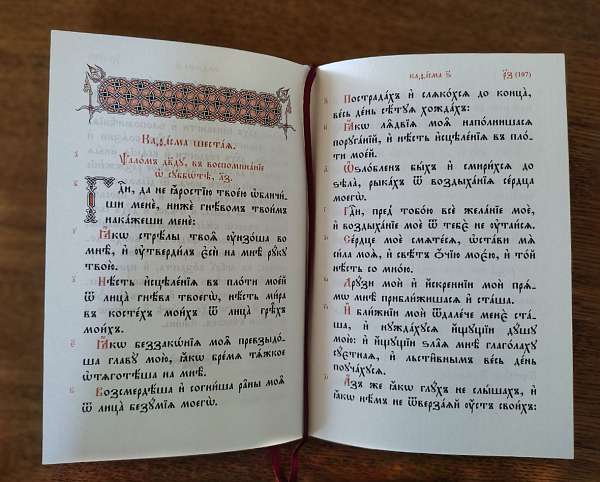 Каѳі́сма шеста́ѧ.
Ѱало́мъ дв҃ду, въ воспомина́нїе
ѡ҆ сꙋббѡ́тѣ, л҃з.
Гдⷭ҇и, да не ꙗ҆́ростїю твое́ю ѡ҆бличи́
ши менѐ, нижѐ гнѣ́вомъ твои́мъ
нака́жеши менѐ:
Ꙗ҆́кѡ стрѣ́лы твоѧ̑ ᲂу҆нзо́ша во
мнѣ̀, и҆ ᲂу҆тверди́лъ є҆сѝ на мнѣ̀ рꙋ́кꙋ
твою̀.
Нѣ́сть и҆сцѣле́нїѧ въ пло́ти мое́й
ѿ лица̀ гнѣ́ва твоегѡ̀, нѣ́сть ми́ра
въ косте́хъ мои́хъ ѿ лица̀ грѣ̑хъ
мои́хъ.
Ꙗ҆́кѡ беззакѡ́нїѧ моѧ̑ превзыдо́
ша главꙋ̀ мою̀, ꙗ҆́кѡ бре́мѧ тѧ́жкое
ѡ҆тѧготѣ́ша на мнѣ̀.
Возсмердѣ́ша и҆ согни́ша ра̑ны моѧ̑
ѿ лица̀ безꙋ́мїѧ моегѡ̀.
каѳі́сма ѕ҃
л҃з (107)
Пострада́хъ и҆ слѧко́хсѧ до конца̀,
ве́сь де́нь сѣ́тꙋѧ хожда́хъ:
Ꙗ҆́кѡ лѧ̑двїѧ моѧ̑ напо́лнишасѧ
порꙋга́нїй, и҆ нѣ́сть и҆сцѣле́нїѧ въ пло́
ти мое́й.
Ѡ҆ѕло́бленъ бы́хъ и҆ смири́хсѧ до
ѕѣла̀, рыка́хъ ѿ воздыха́нїѧ се́рдца
моегѡ̀.
Гдⷭ҇и, пред̾ тобо́ю всѐ жела́нїе моѐ,
и҆ воздыха́нїе моѐ ѿ тебє̀ не ᲂу҆таи́сѧ.
Се́рдце моѐ смѧте́сѧ, ѡ҆ста́ви мѧ̀
си́ла моѧ̀, и҆ свѣ́тъ ѻ҆́чїю моє́ю, и҆ то́й
нѣ́сть со мно́ю.
Дрꙋ́зи моѝ и҆ и҆́скреннїи моѝ прѧ́
мѡ мнѣ̀ прибли́жишасѧ и҆ ста́ша,
И҆ бли́жнїи моѝ ѿдале́че менє̀ ста́
ша, и҆ нꙋжда́хꙋсѧ и҆́щꙋщїи дꙋ́шꙋ
мою̀: и҆ и҆́щꙋщїи ѕла̑ѧ мнѣ̀ глаго́лахꙋ
сꙋ́єтнаѧ, и҆ льсти̑внымъ ве́сь де́нь
поꙋча́хꙋсѧ.
А҆́зъ же ꙗ҆́кѡ глꙋ́хъ не слы́шахъ, и҆
ꙗ҆́кѡ нѣ́мъ не ѿверза́ѧй ᲂу҆́стъ свои́хъ: